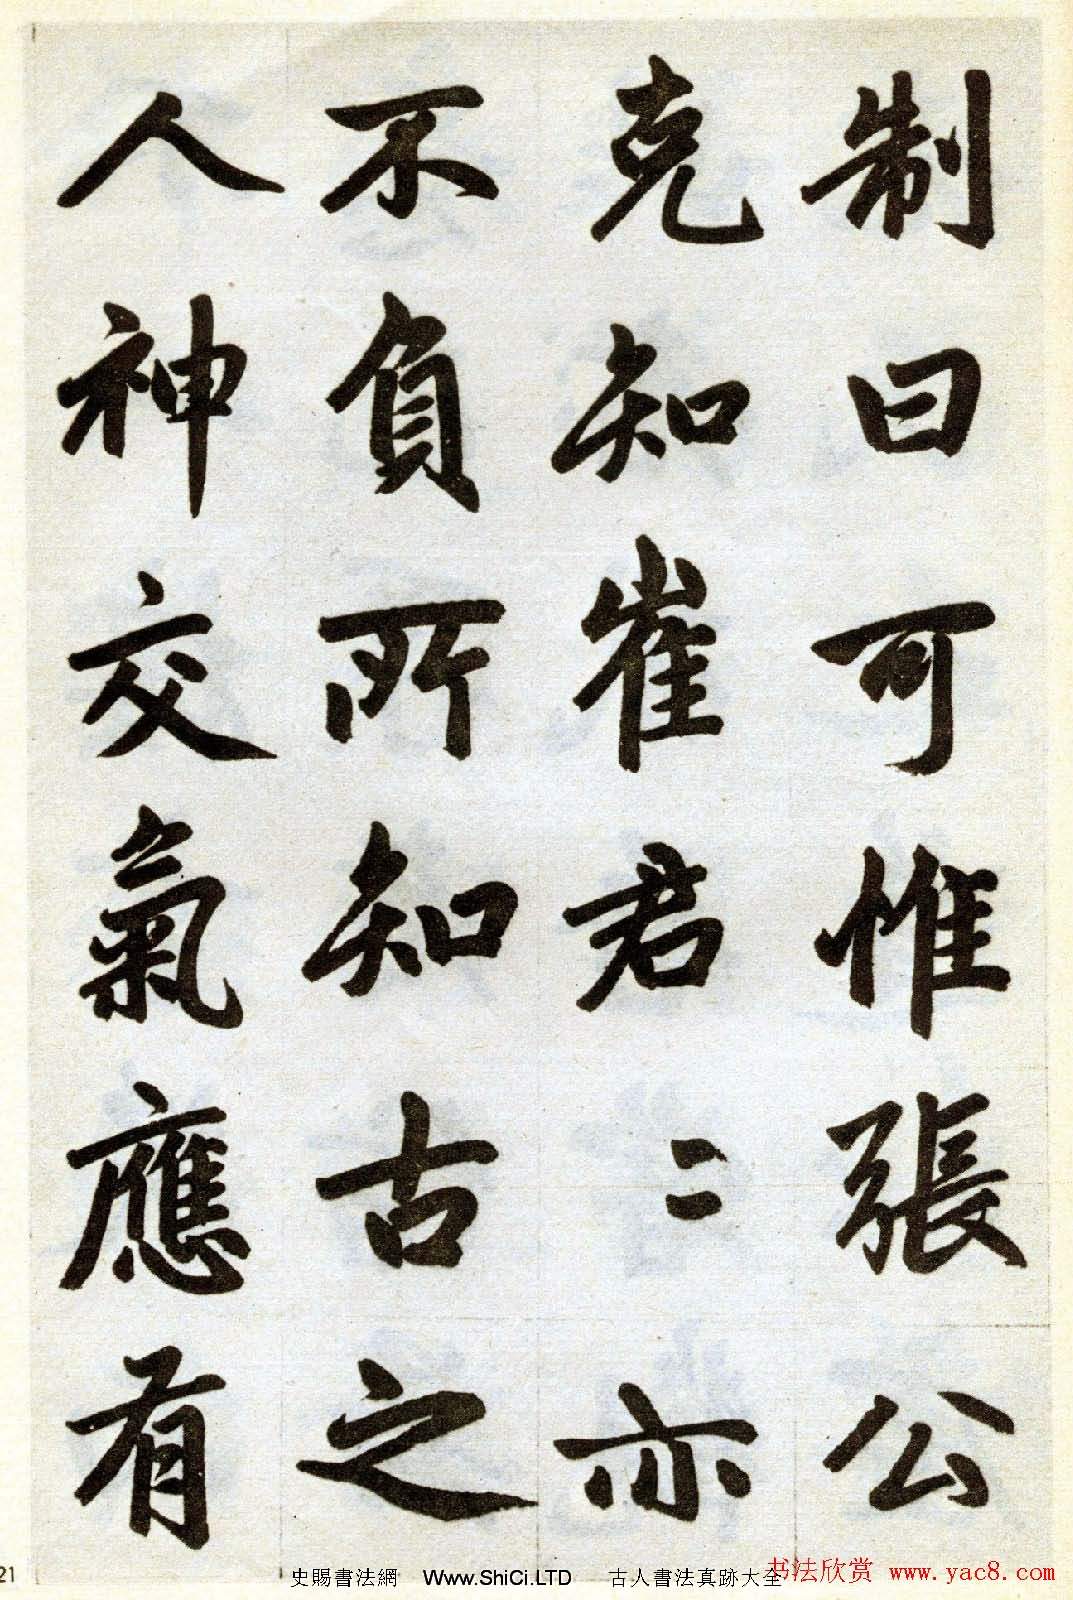 制曰可惟張公
克知崔君〻亦
不負所知古之
人神交氣應有
21
史賜書法網 Www.ShiCi.LTD 古人書法真跡大全
书法欣赏 www.yac8.com